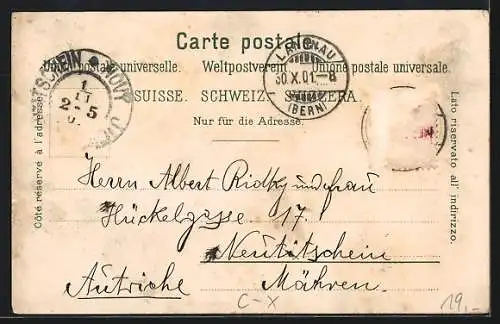 Carte postale.
Union postale universelle. Weltpostverein. Unione postale universale.
SUISSE. SCHWEIZ. SVIZZERA.
Nur für die Adresse.
LANGNAU
30.X.01-8
(BERN)
TITSCHEIN NOVÝ JI
1
11
2-5
Côté réservé à l'adresse.
Lato riservato all' indirizzo.
Herrn Albert Ridky und frau
Hückelgasse 17.
Neutitschein
Autriche Mähren.
C-X
19,-